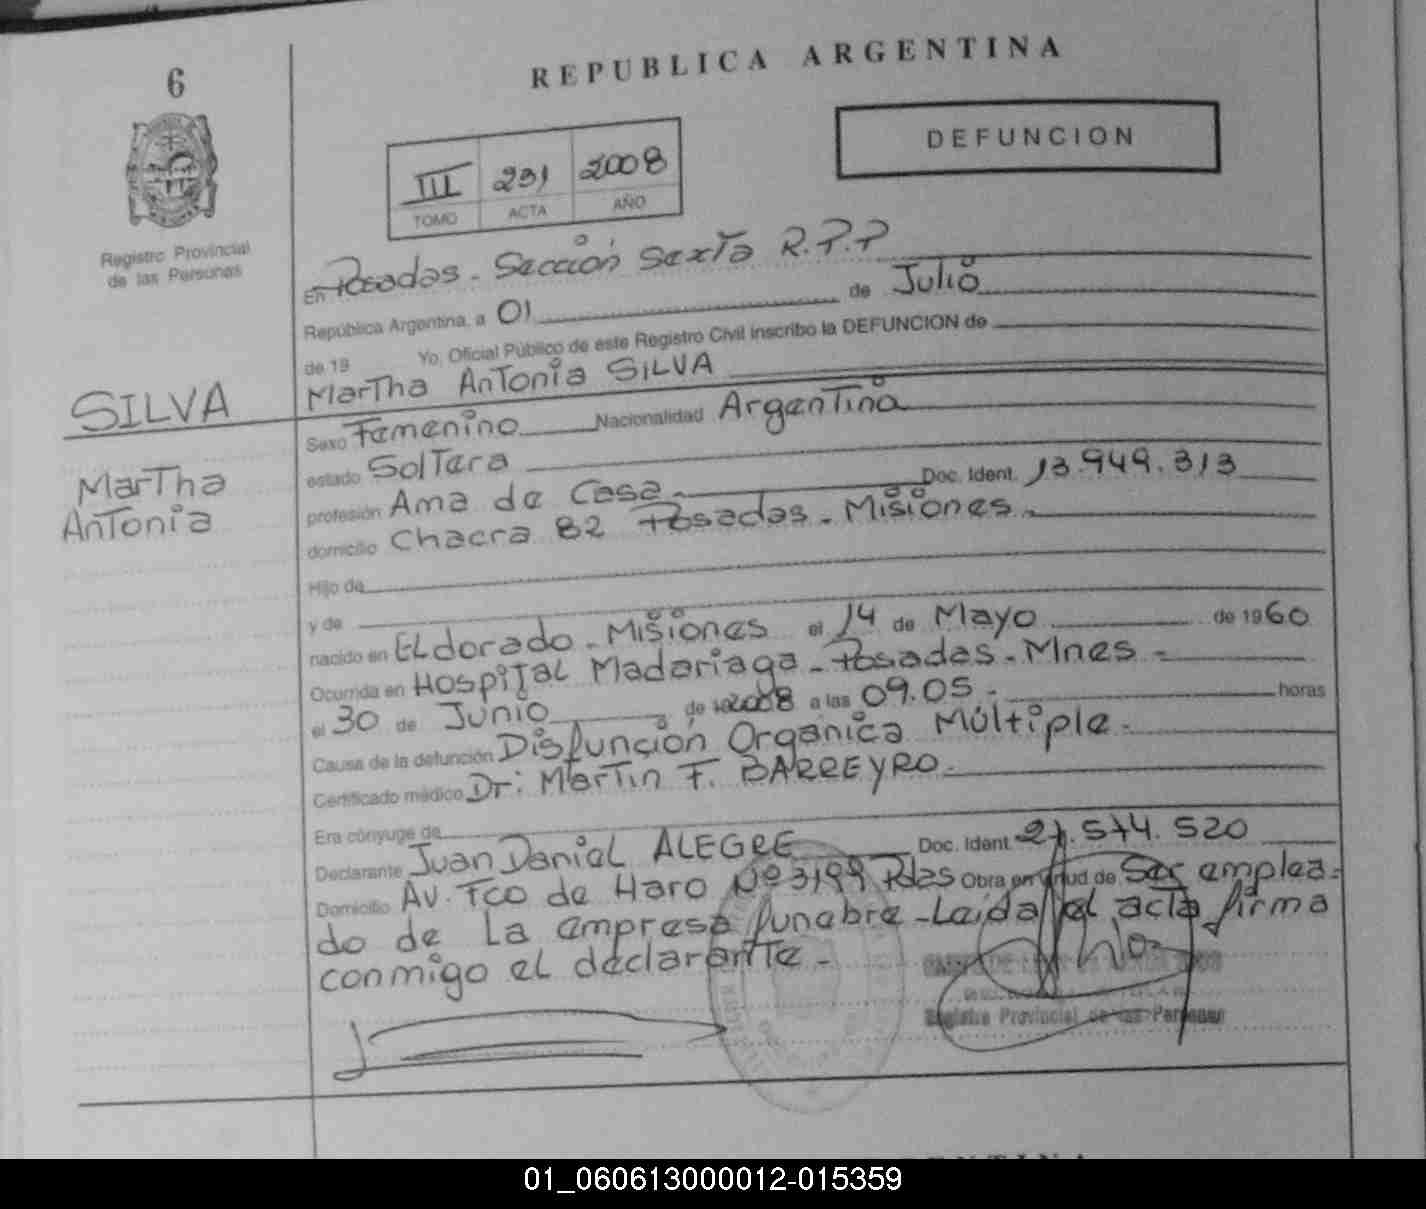 6
REPUBLICA ARGENTINA
DEFUNCION
III 231 2008
TOMO ACTA AÑO
Registro Provincial
de las Personas
En Posadas - Sección Sexta R.P.P
República Argentina, a 01 de Julio
de 19 Yo, Oficial Público de este Registro Civil inscribo la DEFUNCION de
SILVA
Martha Antonia SILVA
Sexo Femenino Nacionalidad Argentina
Martha
Antonia
estado Soltera Doc. Ident. 13.949.313
profesión Ama de Casa
domicilio Chacra 82 Posadas - Misiones.
Hijo de
y de
nacido en ELdorado - Misiones el 14 de Mayo de 1960
Ocurrida en Hospital Madariaga - Posadas - Mnes -
el 30 de Junio de 2008 a las 09.05 - horas
Causa de la defunción Disfunción Orgánica Múltiple -
Certificado médico Dr: Martin F. BARREYRO -
Era cónyuge de
Declarante Juan Daniel ALEGRE Doc. Ident. 21.574.520
Domicilio Av. Fco de Haro Nº 3199 Pdas Obra en virtud de Ser emplea-
do de La empresa funebre - Leida el acta firma
conmigo el declarante -
Registro Provincial de las Personas
01_060613000012-015359